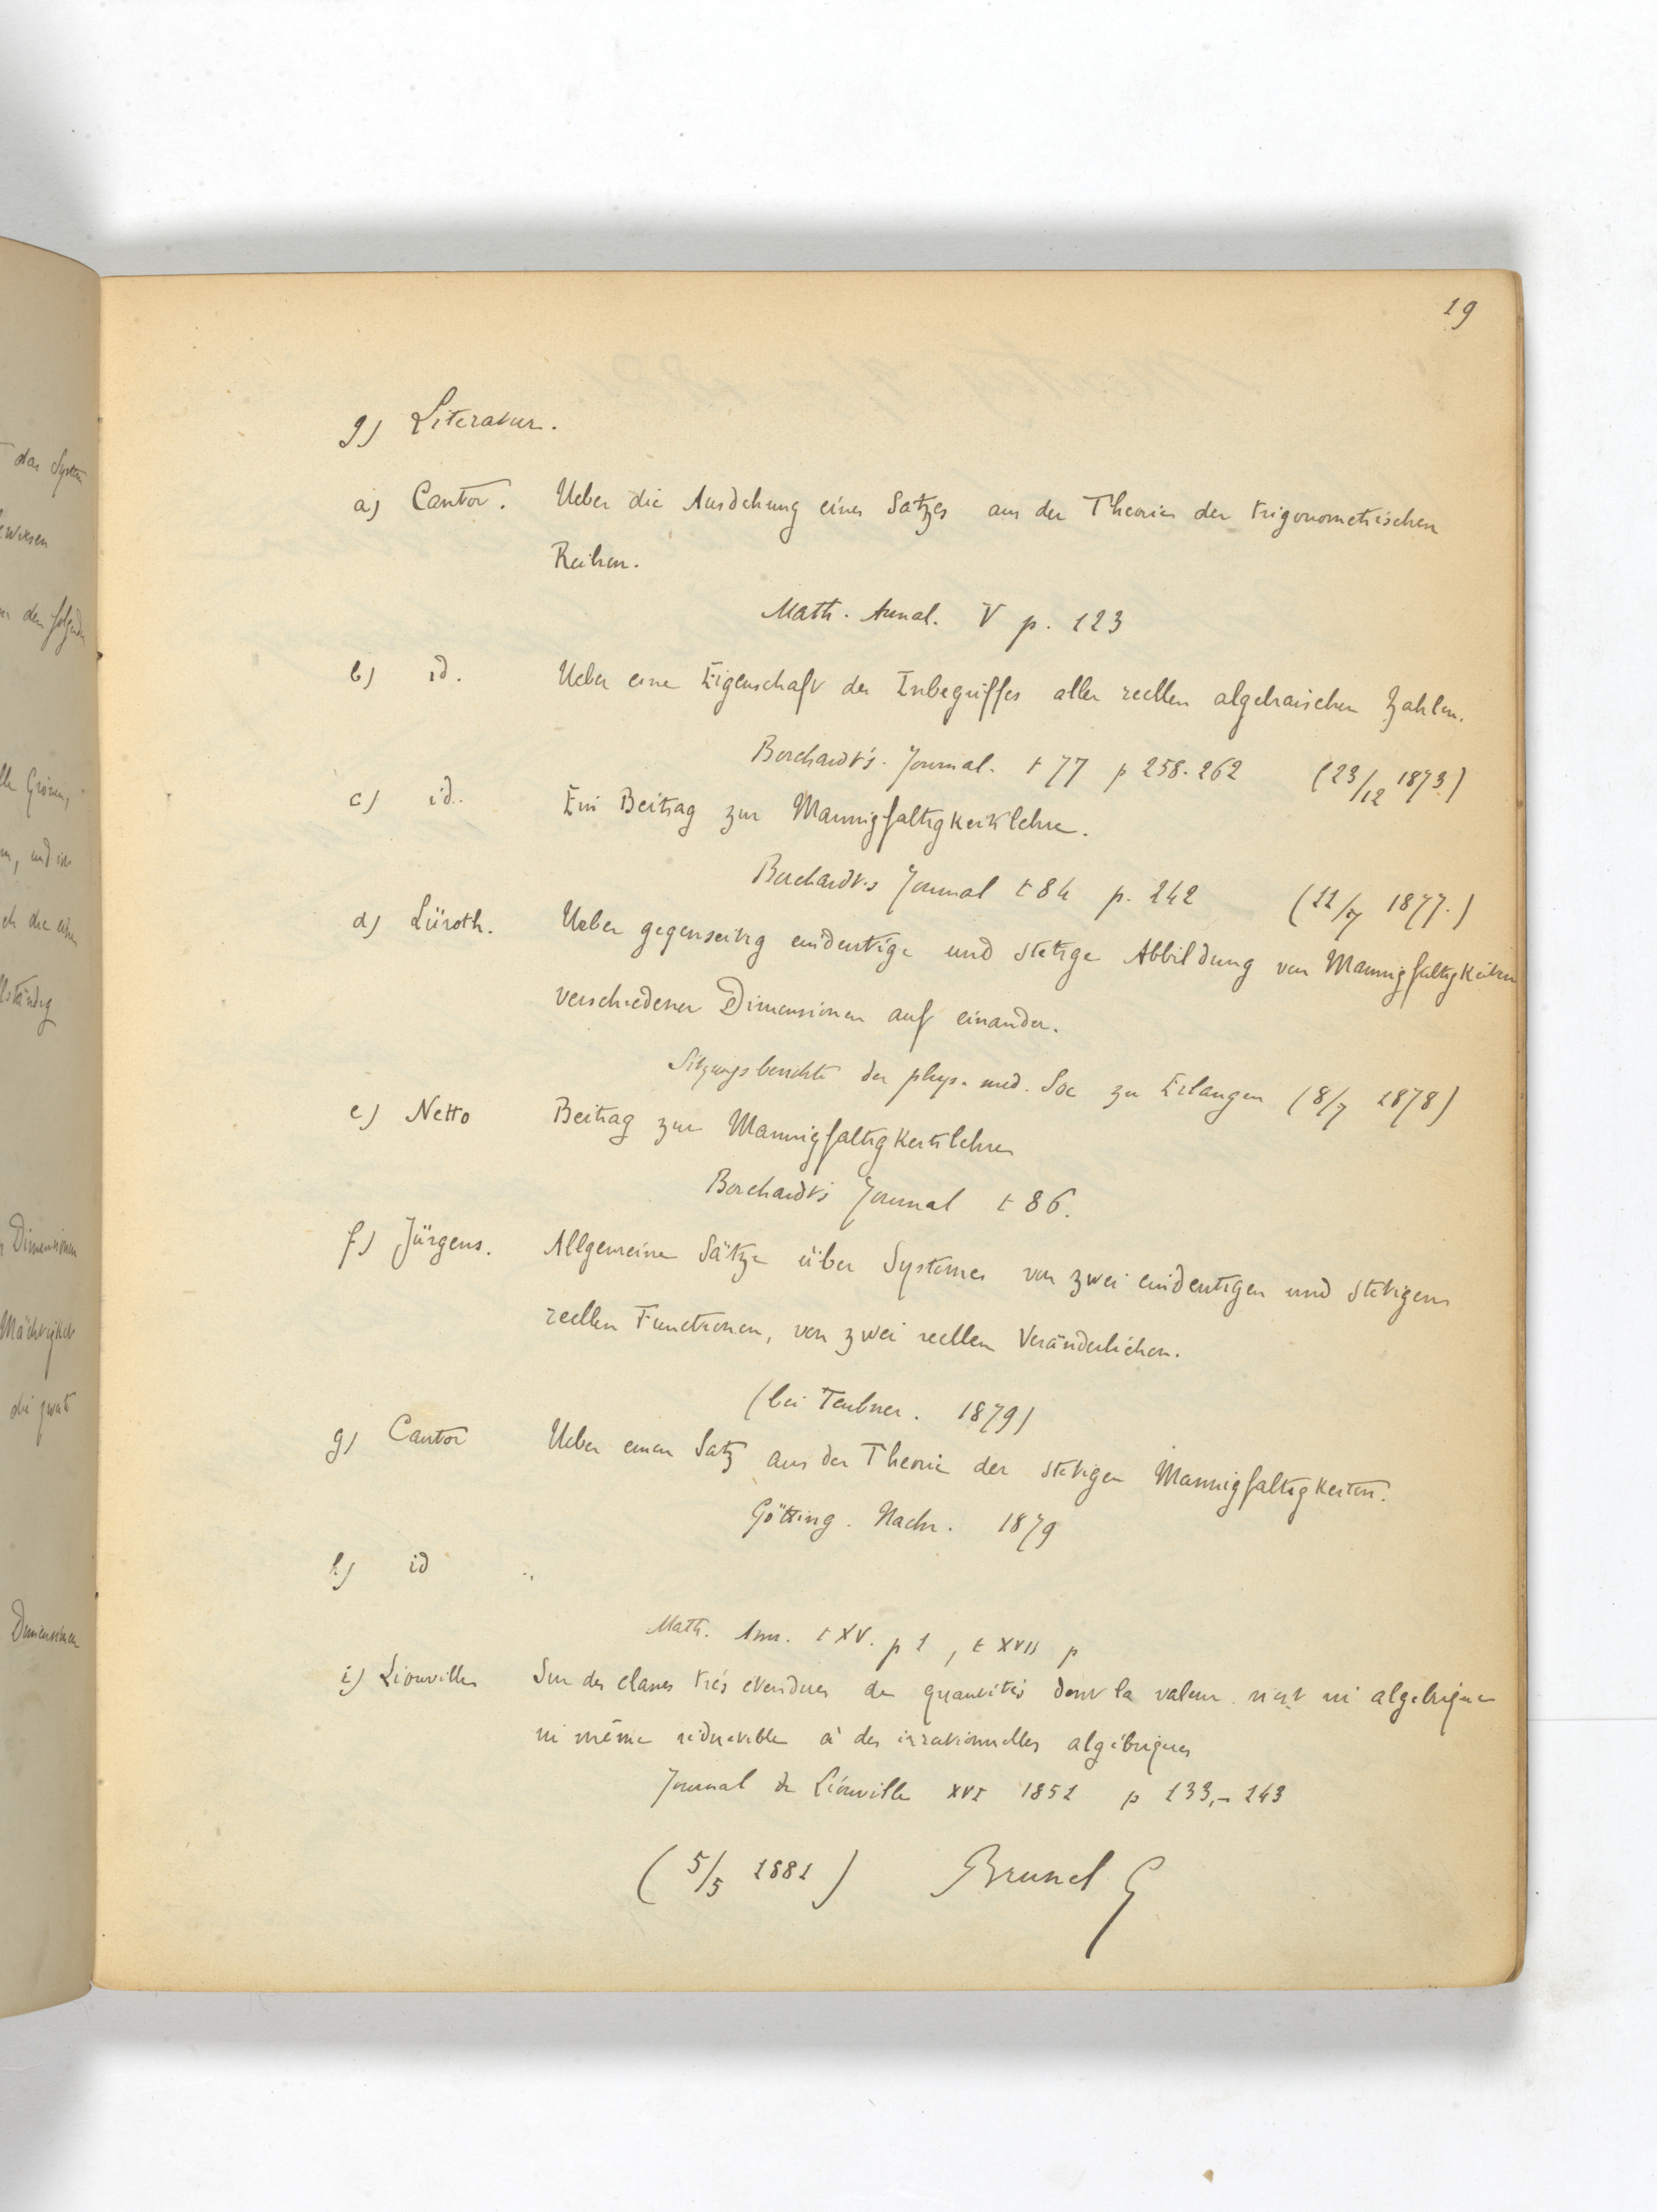 dar System
ewiesen
den folgenden
lle Grössen,
m, und ist
ch die eine
llständig
Dimensionen
Mächtigkeit
die zweite
Dimensionen
19
g) Literatur.
a) Cantor. Ueber die Ausdehung eines Satzes aus der Theorie der trigonometrischen
Reihen.
Math. Annal. V p. 123
b) id. Ueber eine Eigenschaft des Inbegriffes aller reellen algebraischen Zahlen.
Borchardt's Journal. t 77 p 258-262 (23/12 1873.)
c) id. Ein Beitrag zur Mannigfaltigkeitslehre.
Borchardt's Journal t 84 p. 242 (11/7 1877.)
d) Lüroth. Ueber gegenseitig eindeutige und stetige Abbildung von Mannigfaltigkeiten
verschiedener Dimensionen auf einander.
Sitzungsberichte der phys. med. Soc zu Erlangen (8/7 1878)
e) Netto Beitrag zur Mannigfaltigkeitslehre
Borchardt's Journal t 86.
f) Jürgens. Allgemeine Sätze über Systeme von zwei eindeutigen und stetigen
reellen Functionen, von zwei reellen Veränderlichen.
(bei Teubner. 1879)
g) Cantor Ueber einen Satz aus der Theorie der stetigen Mannigfaltigkeiten.
Götting. Nachr. 1879
h) id
Math. Ann. t XV. p 1, t XVII p
i) Liouville Sur des classes très étendues de quantités dont la valeur n'est ni algébrique
ni même réductible à des irrationnelles algébriques
Journal de Liouville XVI 1851 p 133,-143
(5/5 1881) Brunel G